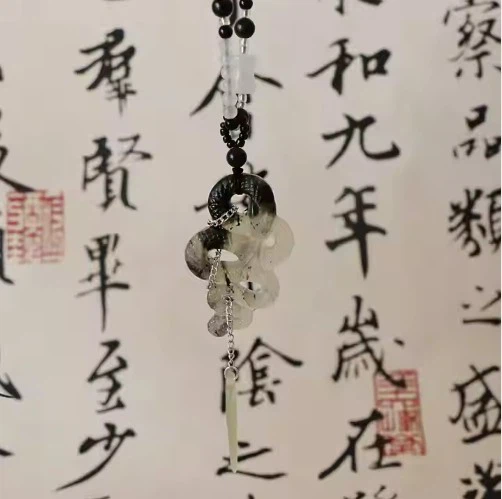 察品類之盛
和九年歲在
陰之
羣賢畢至少